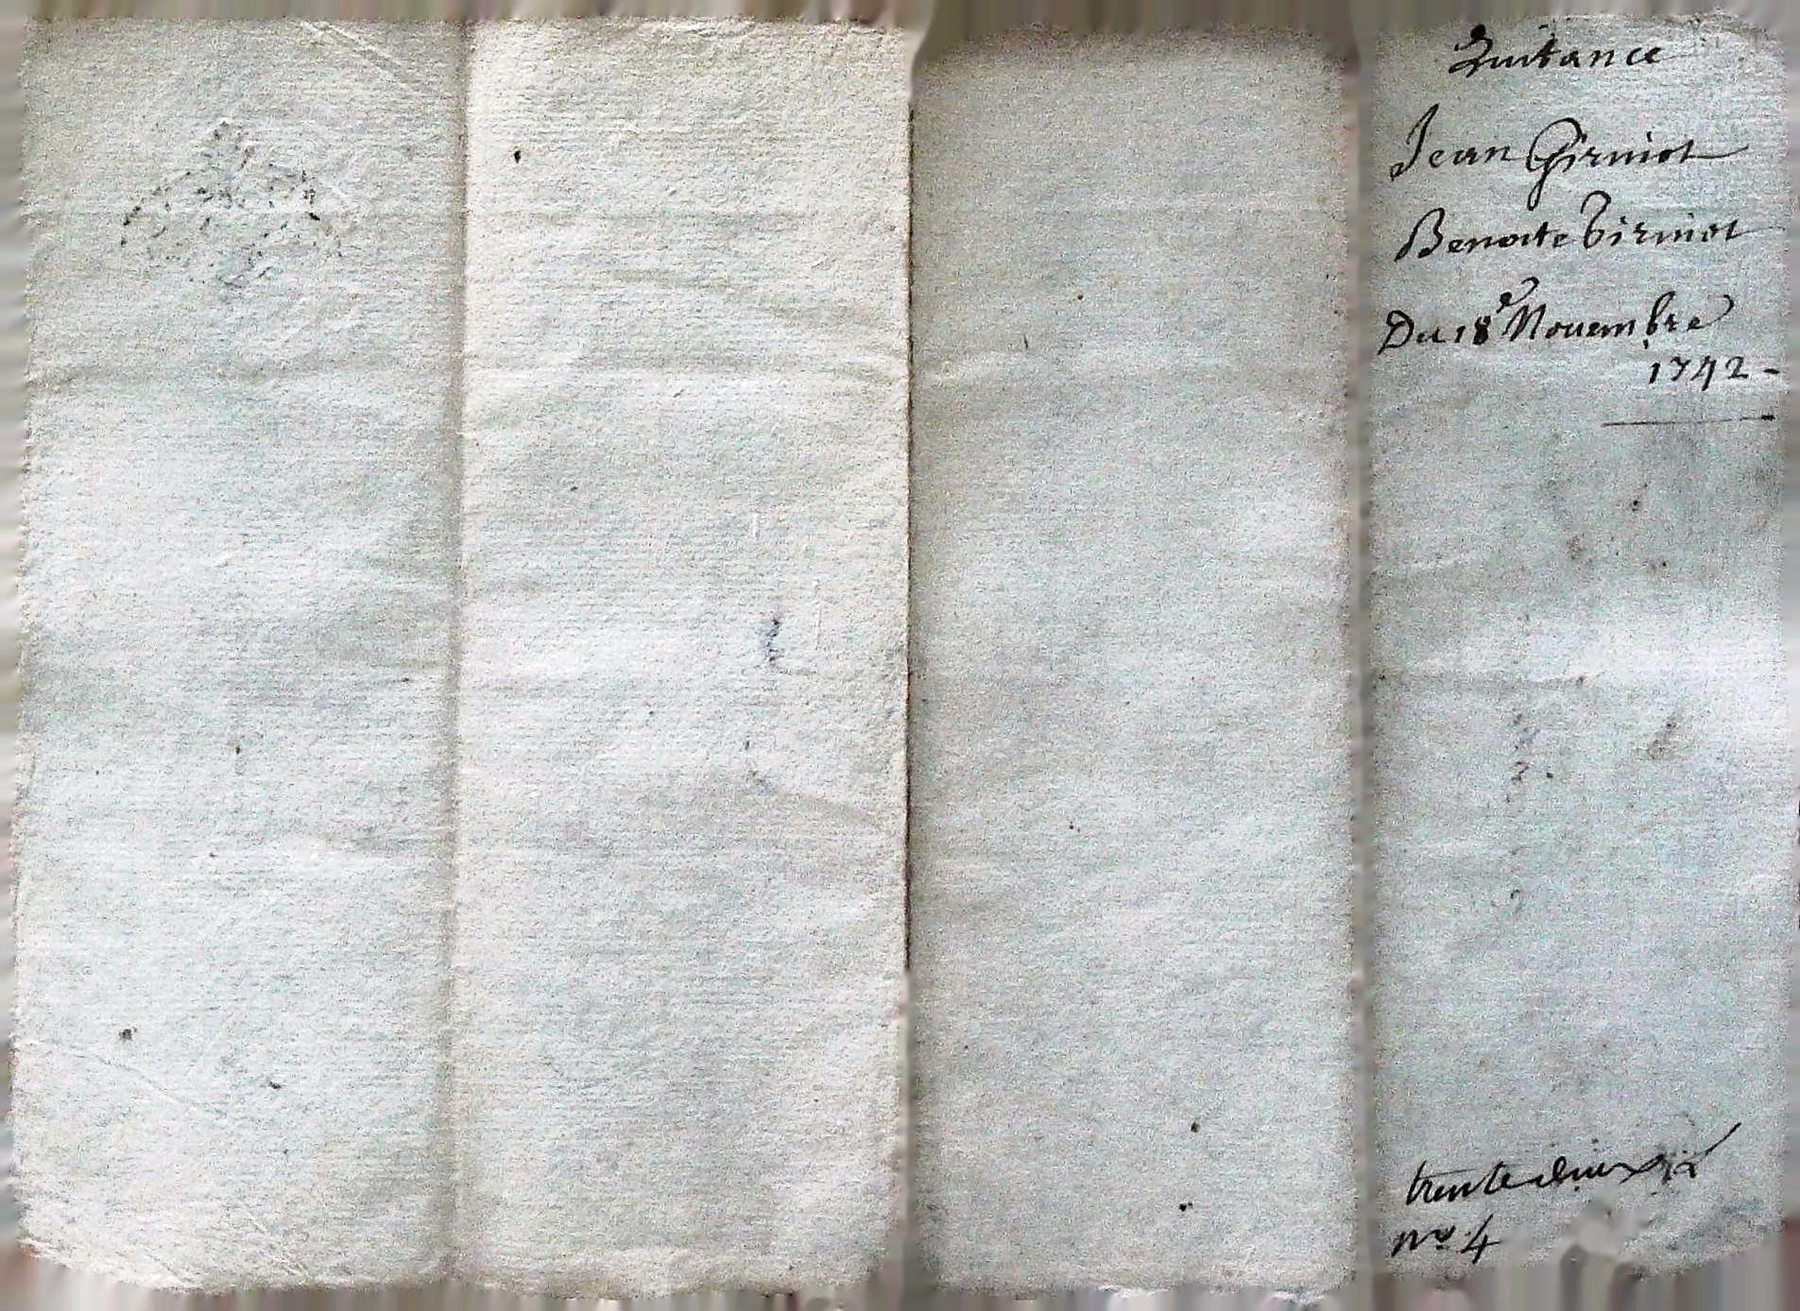 Quitance
Jean Girniot
Benoite Girniot
Du 18e Nouembre
1742 -
trente deux
no 4